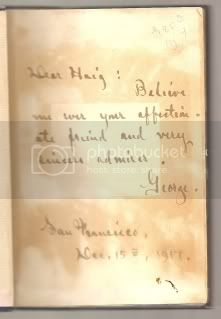 Dear Haig:
Believe
me ever your affection-
ate friend and very
sincere admirer.
George.
San Francisco,
Dec. 15th, 1917.
photobucket